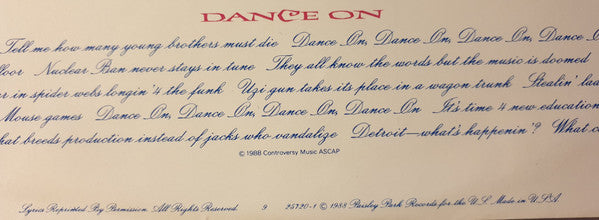 DANCE ON
Tell me how many young brothers must die Dance On, Dance On, Dance On, Dance O
loor Nuclear Ban never stays in tune They all know the words but the music is doomed
er in spider webs longin' 4 the funk Uzi gun takes its place in a wagon trunk Stealin' lad
Mouse games Dance On, Dance On, Dance On, Dance On It's time 4 new education
hat breeds production instead of jacks who vandalize Detroit—what's happenin'? What c
© 1988 Controversy Music ASCAP
Lyrics Reprinted By Permission. All Rights Reserved. 9 25720-1 © 1988 Paisley Park Records for the U.S. Made in U.S.A.